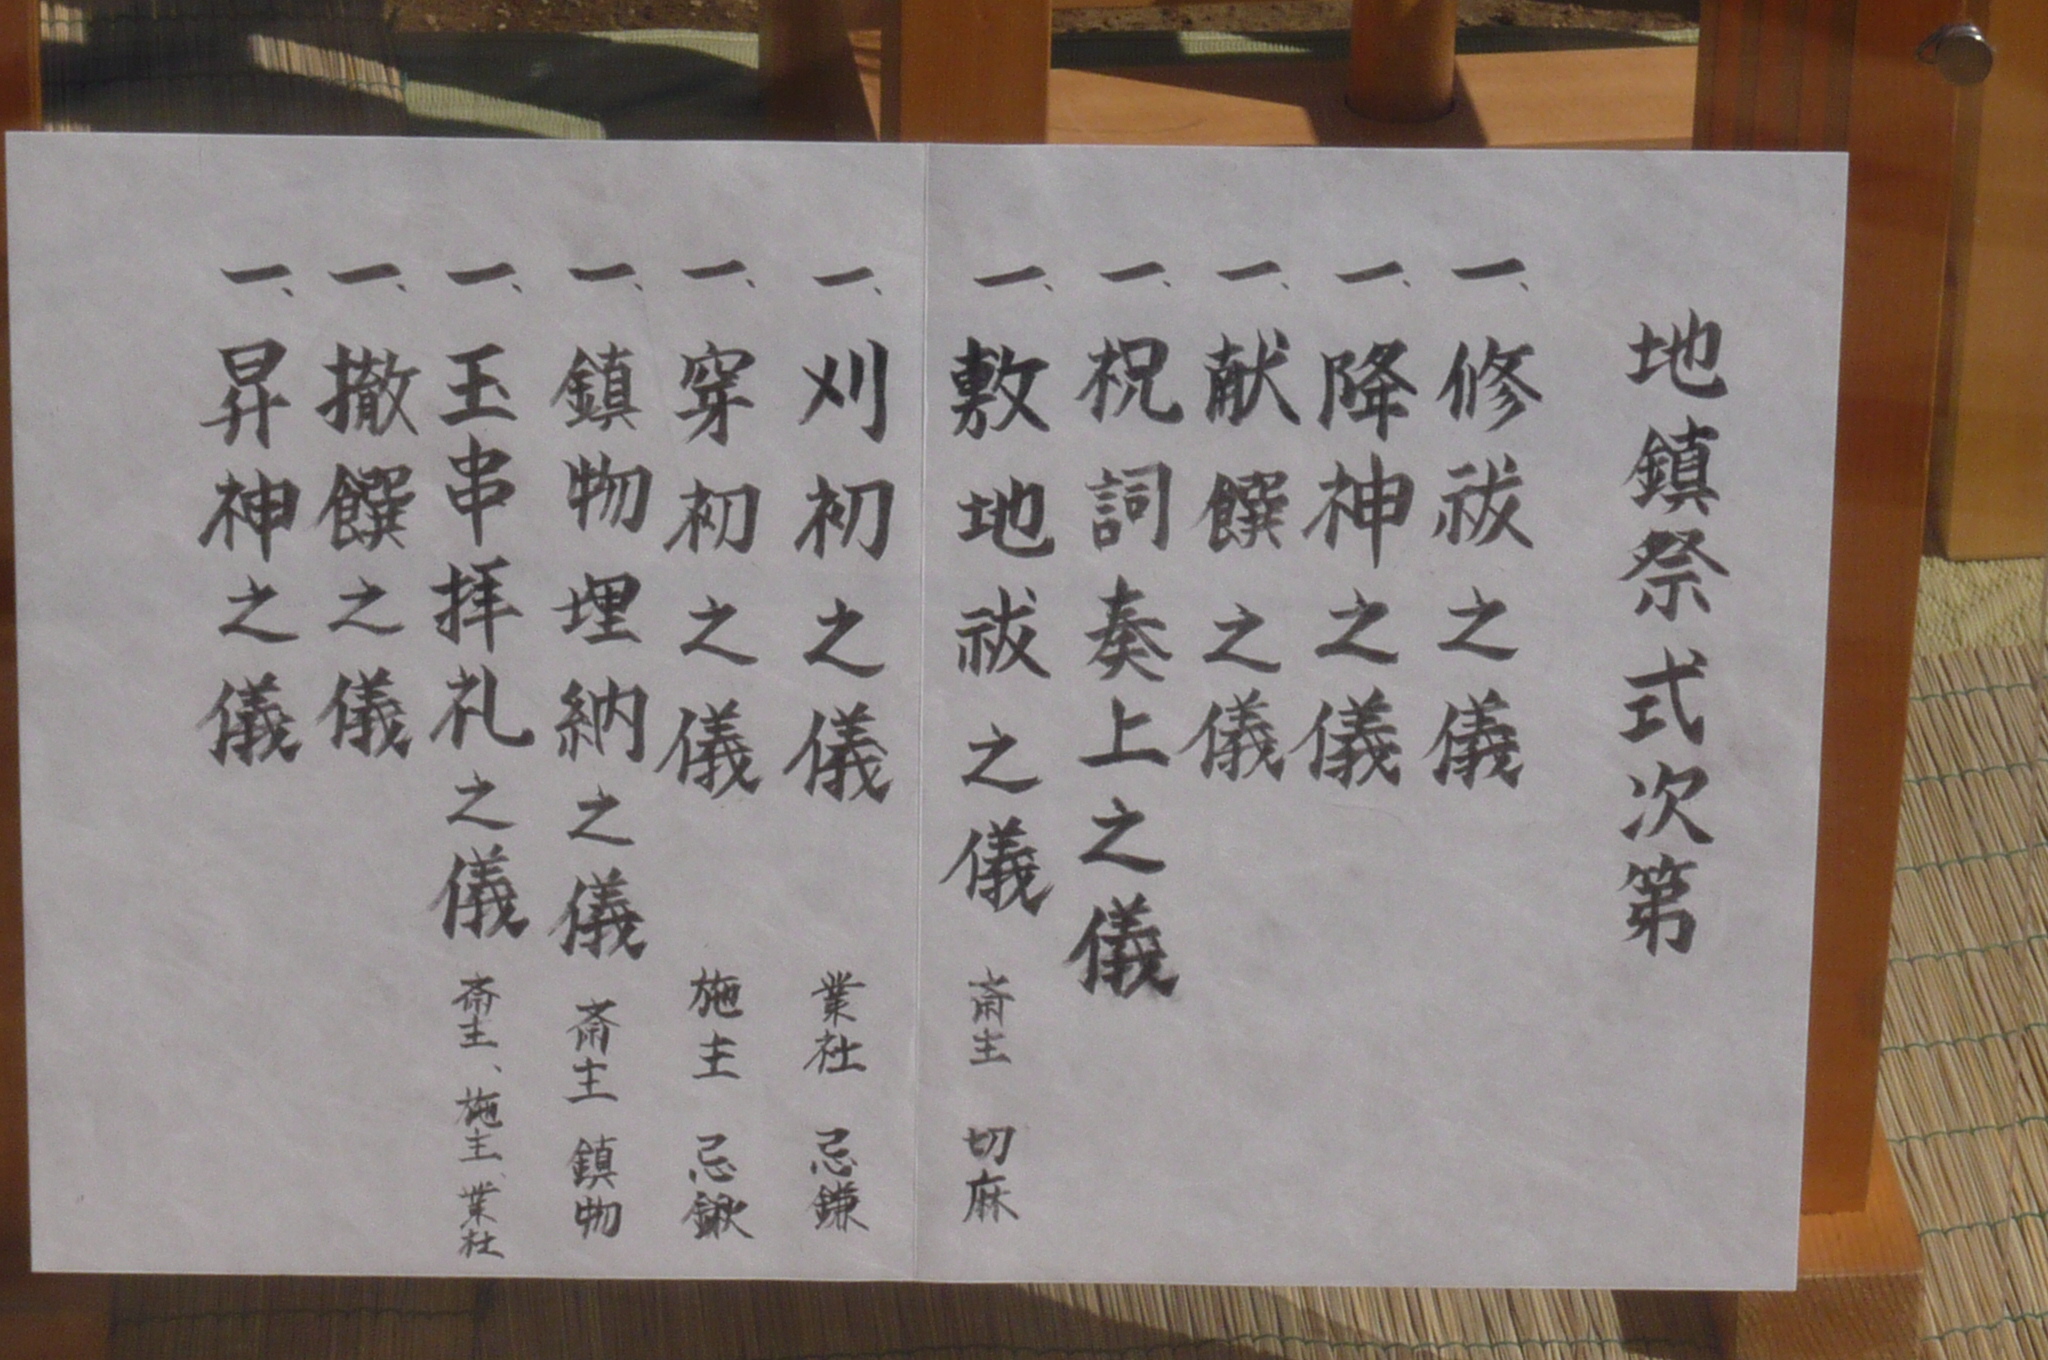 地鎮祭式次第
一、修祓之儀
一、降神之儀
一、献饌之儀
一、祝詞奏上之儀
一、敷地祓之儀 斎主 切麻
一、刈初之儀 業社 忌鎌
一、穿初之儀 施主 忌鍬
一、鎮物埋納之儀 斎主 鎮物
一、玉串拝礼之儀 斎主、施主、業社
一、撤饌之儀
一、昇神之儀